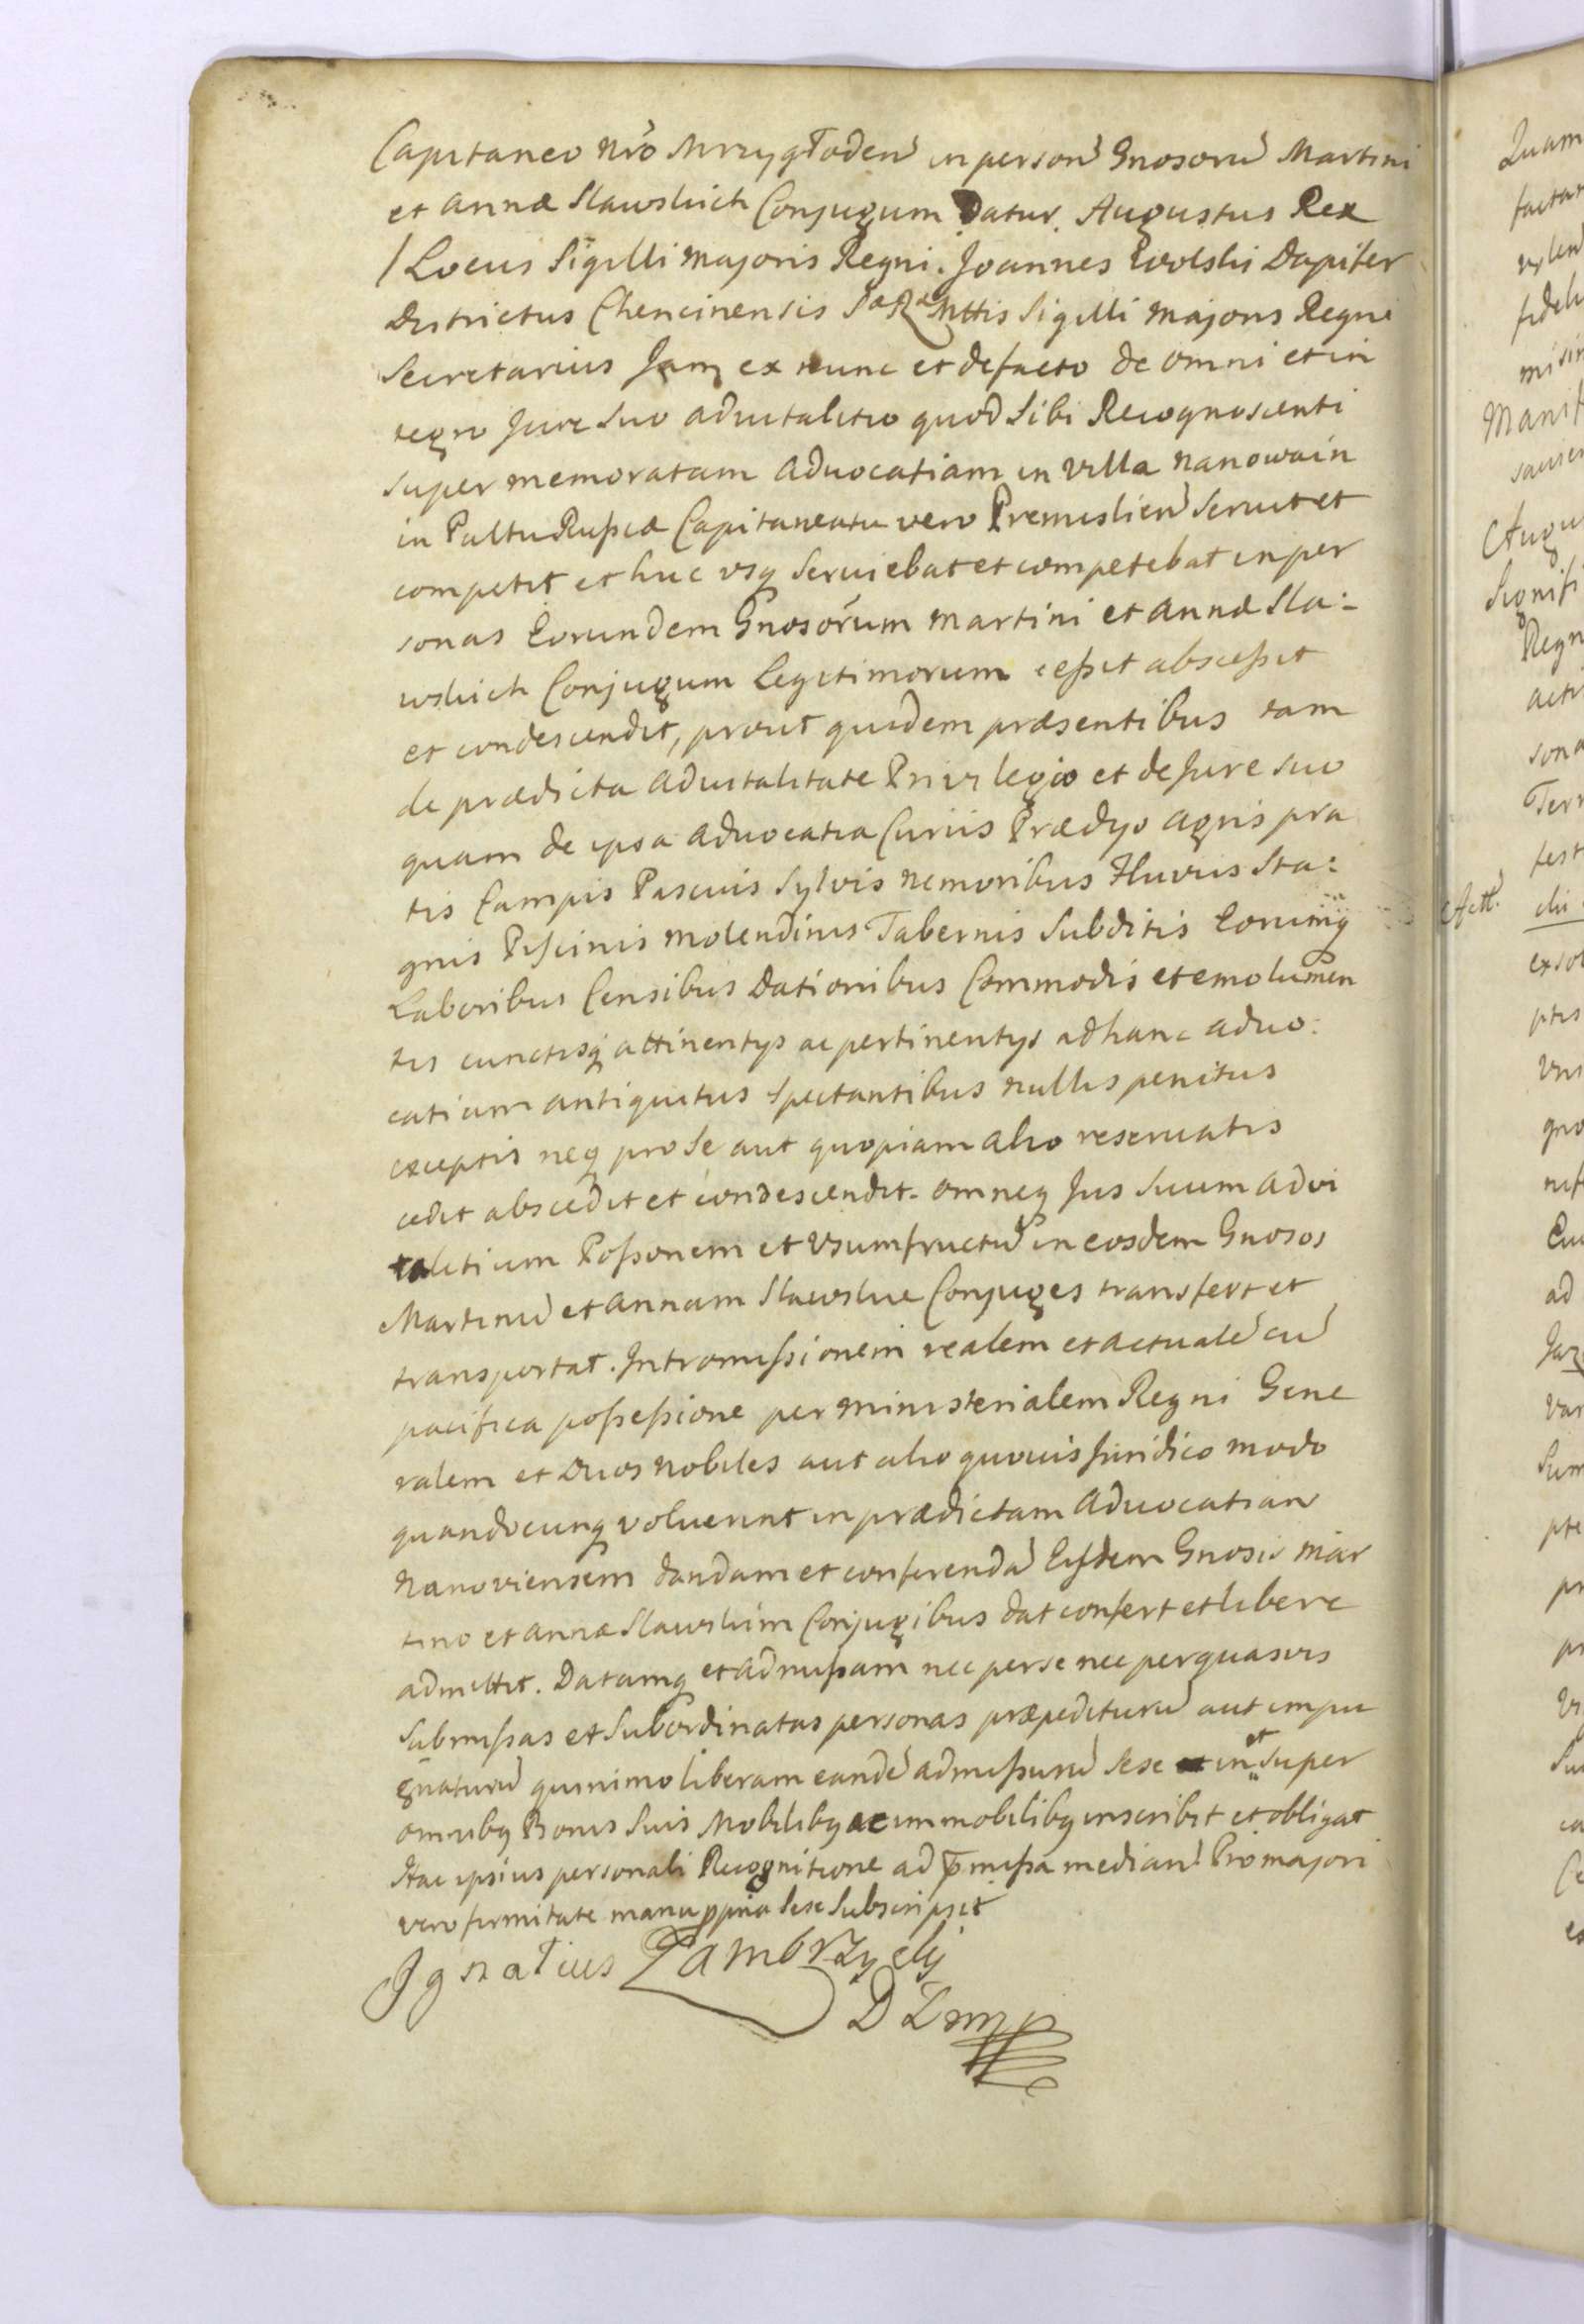 Capitaneo nro Mrzygłoden in person Gnosoru Martini
et annæ Slawskich Conjugum Datur. Augustus Rex
/ Locus Sigilli majoris Regni. Joannes Ewolski Dapifer
Districtus Chencinensis Sæ Ræ Mttis Sigilli majoris Regni
Secretarius Jam ex nunc et defacto de omni et in
tegro Jure suo advitalitio quod sibi Recognoscenti
super memoratam advocatiam in villa nanowa in
in Paltu Rußiæ Capitaneatu vero Premislien servit et
competit et huc usq serviebat et competebat in per
sonas Eorundem Gnosorum martini et annæ Sla:
wskich Conjugum Legitimorum ceßit absceßit
et condescendit, prout quidem præsentibus tam
de prædicta advitalitate Privilegio et de Jure suo
quam de ipsa advocatia Curiis Prædijo agris pra
tis Campis Pascuis Sylvis nemoribus Fluviis Sta:
gnis Piscinis molendinis Tabernis Subditis Eorumq
Laboribus Censibus Dationibus Commodis et emolumen
tis cunctisq attinentijs ac pertinentijs ad hanc advo:
catiam antiquitus spectantibus nullis penitus
exceptis neq pro se aut quopiam alio reservatis
cedit abscedit et condescendit. omneq Jus suum advi
talitium Poßonem et usumfructu in eosdem Gnosos
Martinu et annam Slawskie Conjuges transfert et
transportat. Intromißionem realem et actuale cu
pacifica poßeßione per ministerialem Regni Gene
ralem et Duos nobiles aut alio quovis Juridico modo
quandocunq voluerint in prædictam advocatian
nanoviensem dandam et conferenda Eisdem Gnosis mar
tino et annæ Slawskim Conjugibus dat confert et libere
admittit. Datamq et admißam nec per se nec per quasvis
submißas et subordinatas personas præpedituru aut impu
gnaturu quinimo liberam eande admißuru sese in et super
omnibq Bonis suis Mobilibq ac immobilibq inscribit et obligat
Hac ipsius personali Recognitione ad pmißa median Pro majori
vero firmitate manu ppria sese subscripsit
Ignatius Zambrzycky
D Z mp